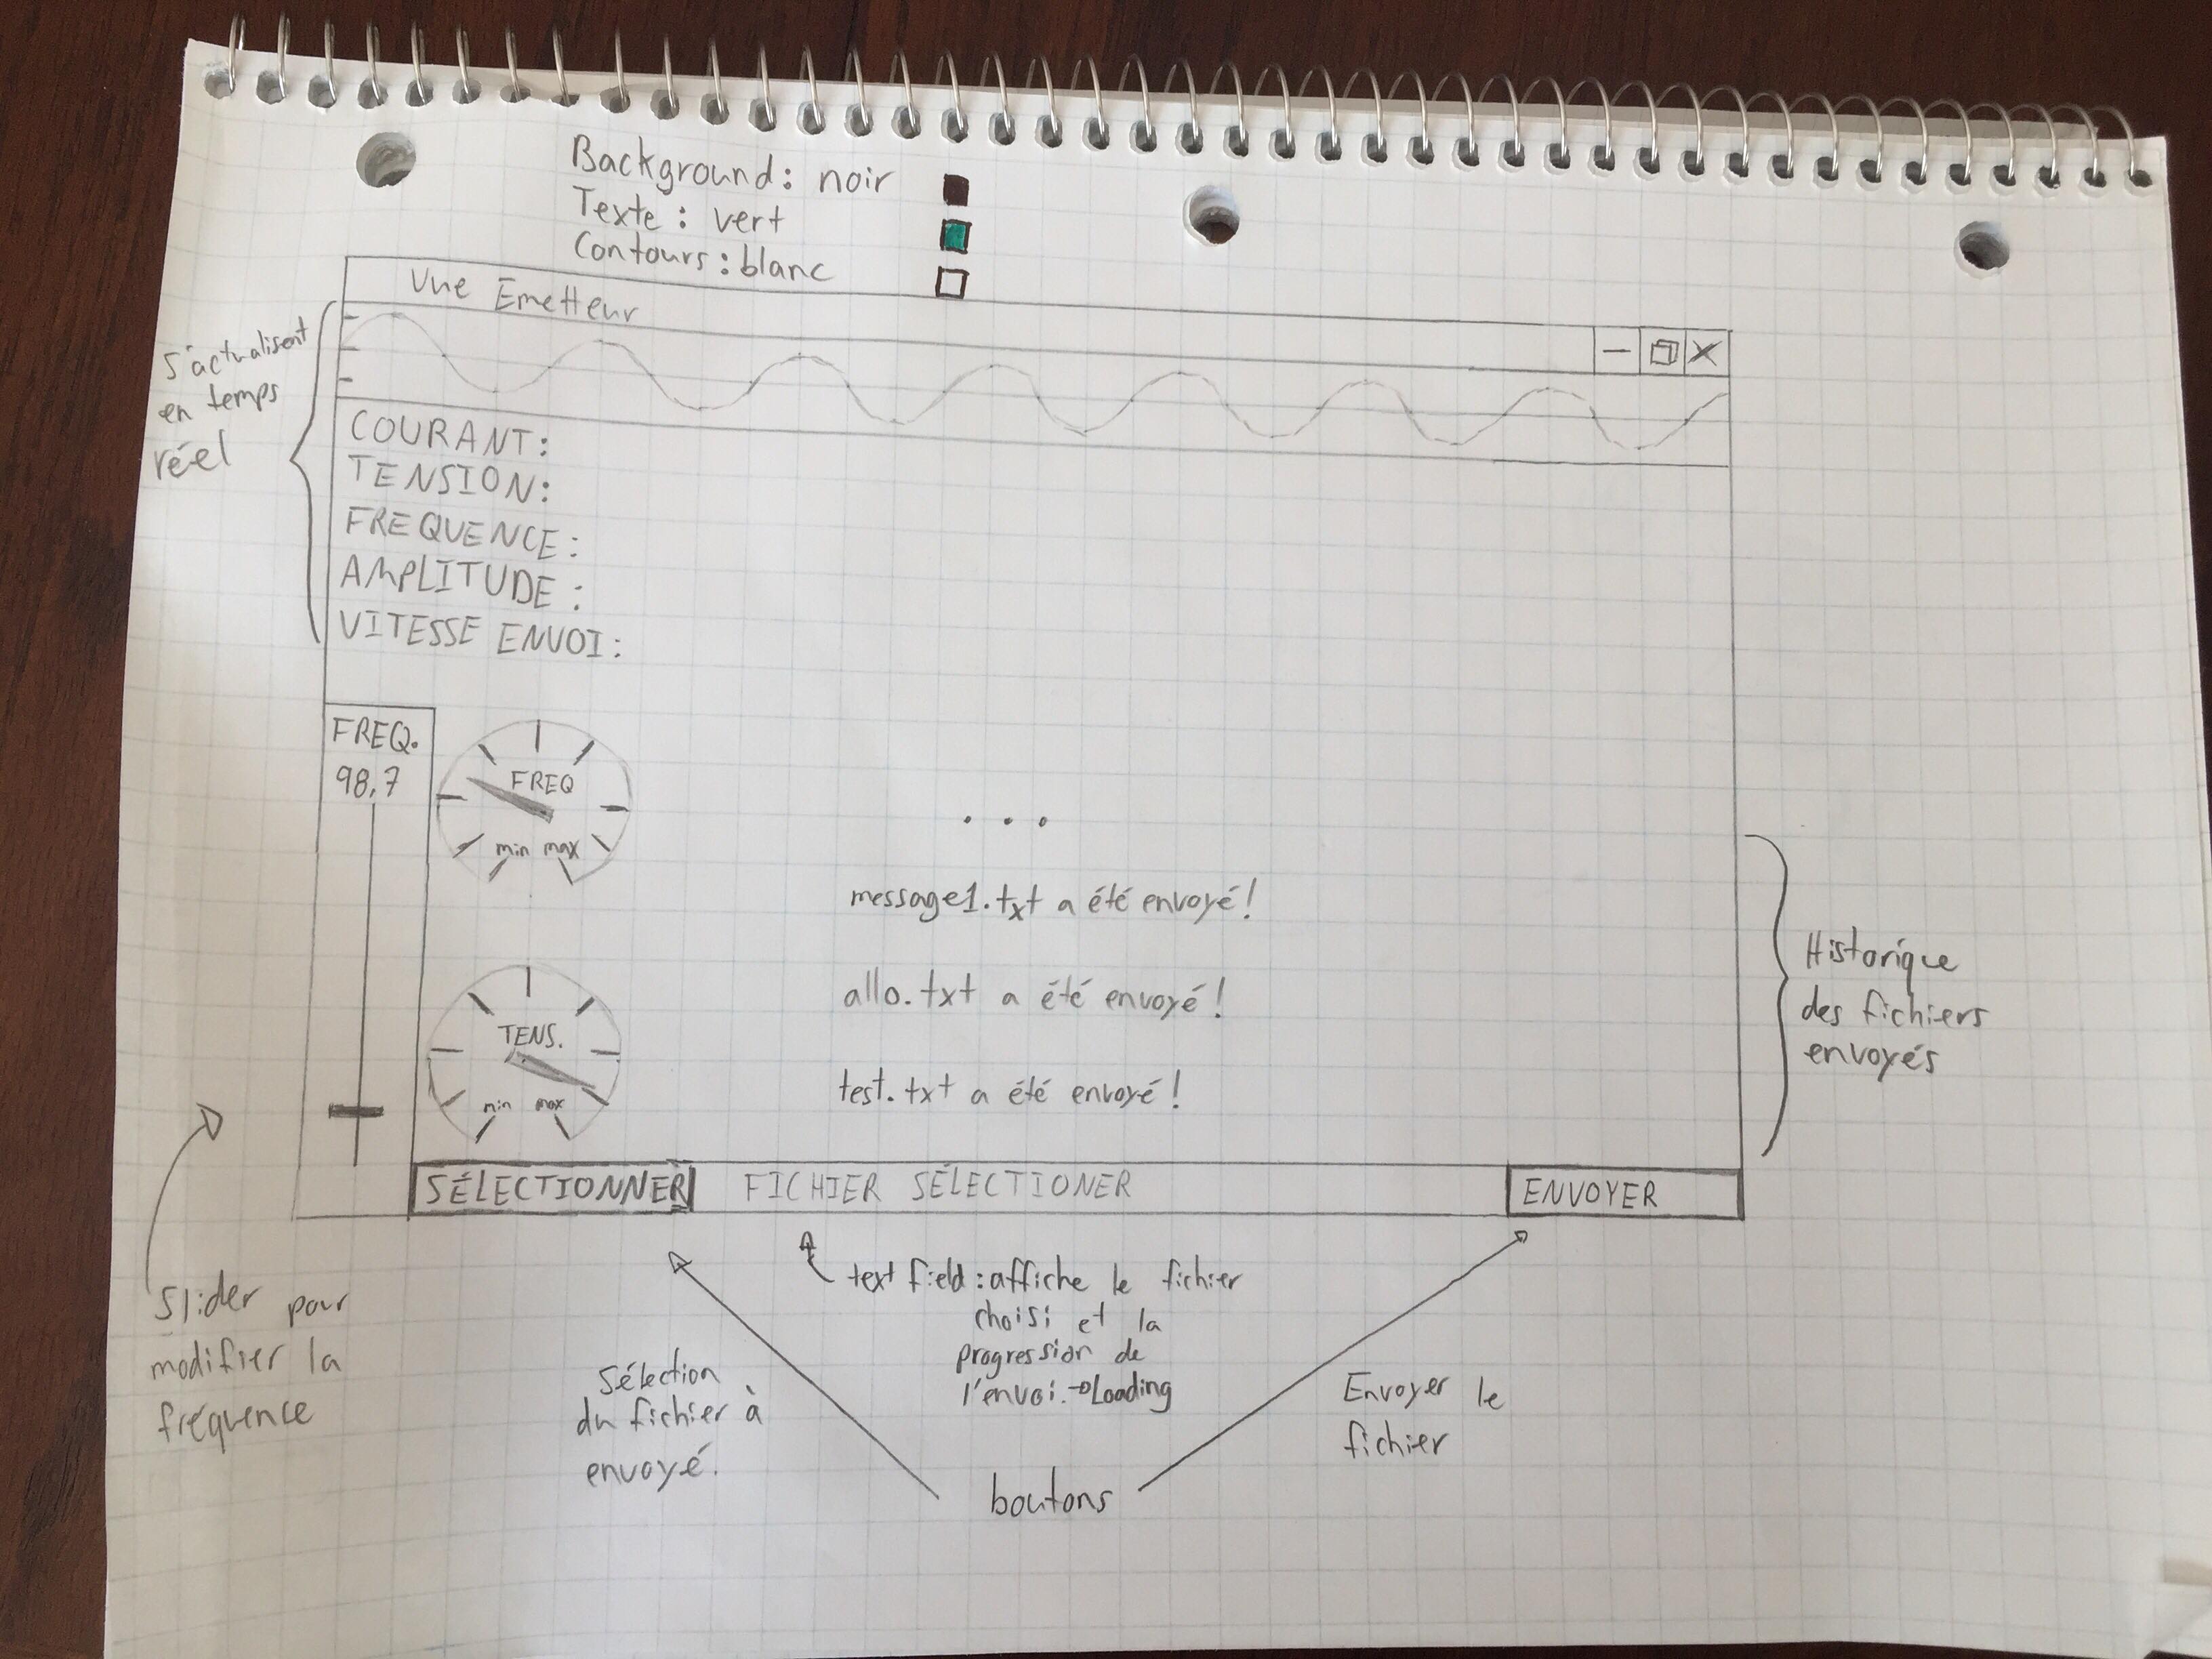 Background: noir
Texte: vert
Contours: blanc
Vue Emetteur
S'actualisent
en temps
réel
COURANT:
TENSION:
FREQUENCE:
AMPLITUDE:
VITESSE ENVOI:
FREQ.
98,7
FREQ
min max
...
message1.txt a été envoyé!
allo.txt a été envoyé!
test.txt a été envoyé!
TENS.
min max
Historique
des fichiers
envoyés
SÉLECTIONNER
FICHIER SÉLECTIONER
ENVOYER
Slider pour
modifier la
fréquence
Sélection
du fichier à
envoyé.
text field: affiche le fichier
choisi et la
progression de
l'envoi.→Loading
Envoyer le
fichier
boutons